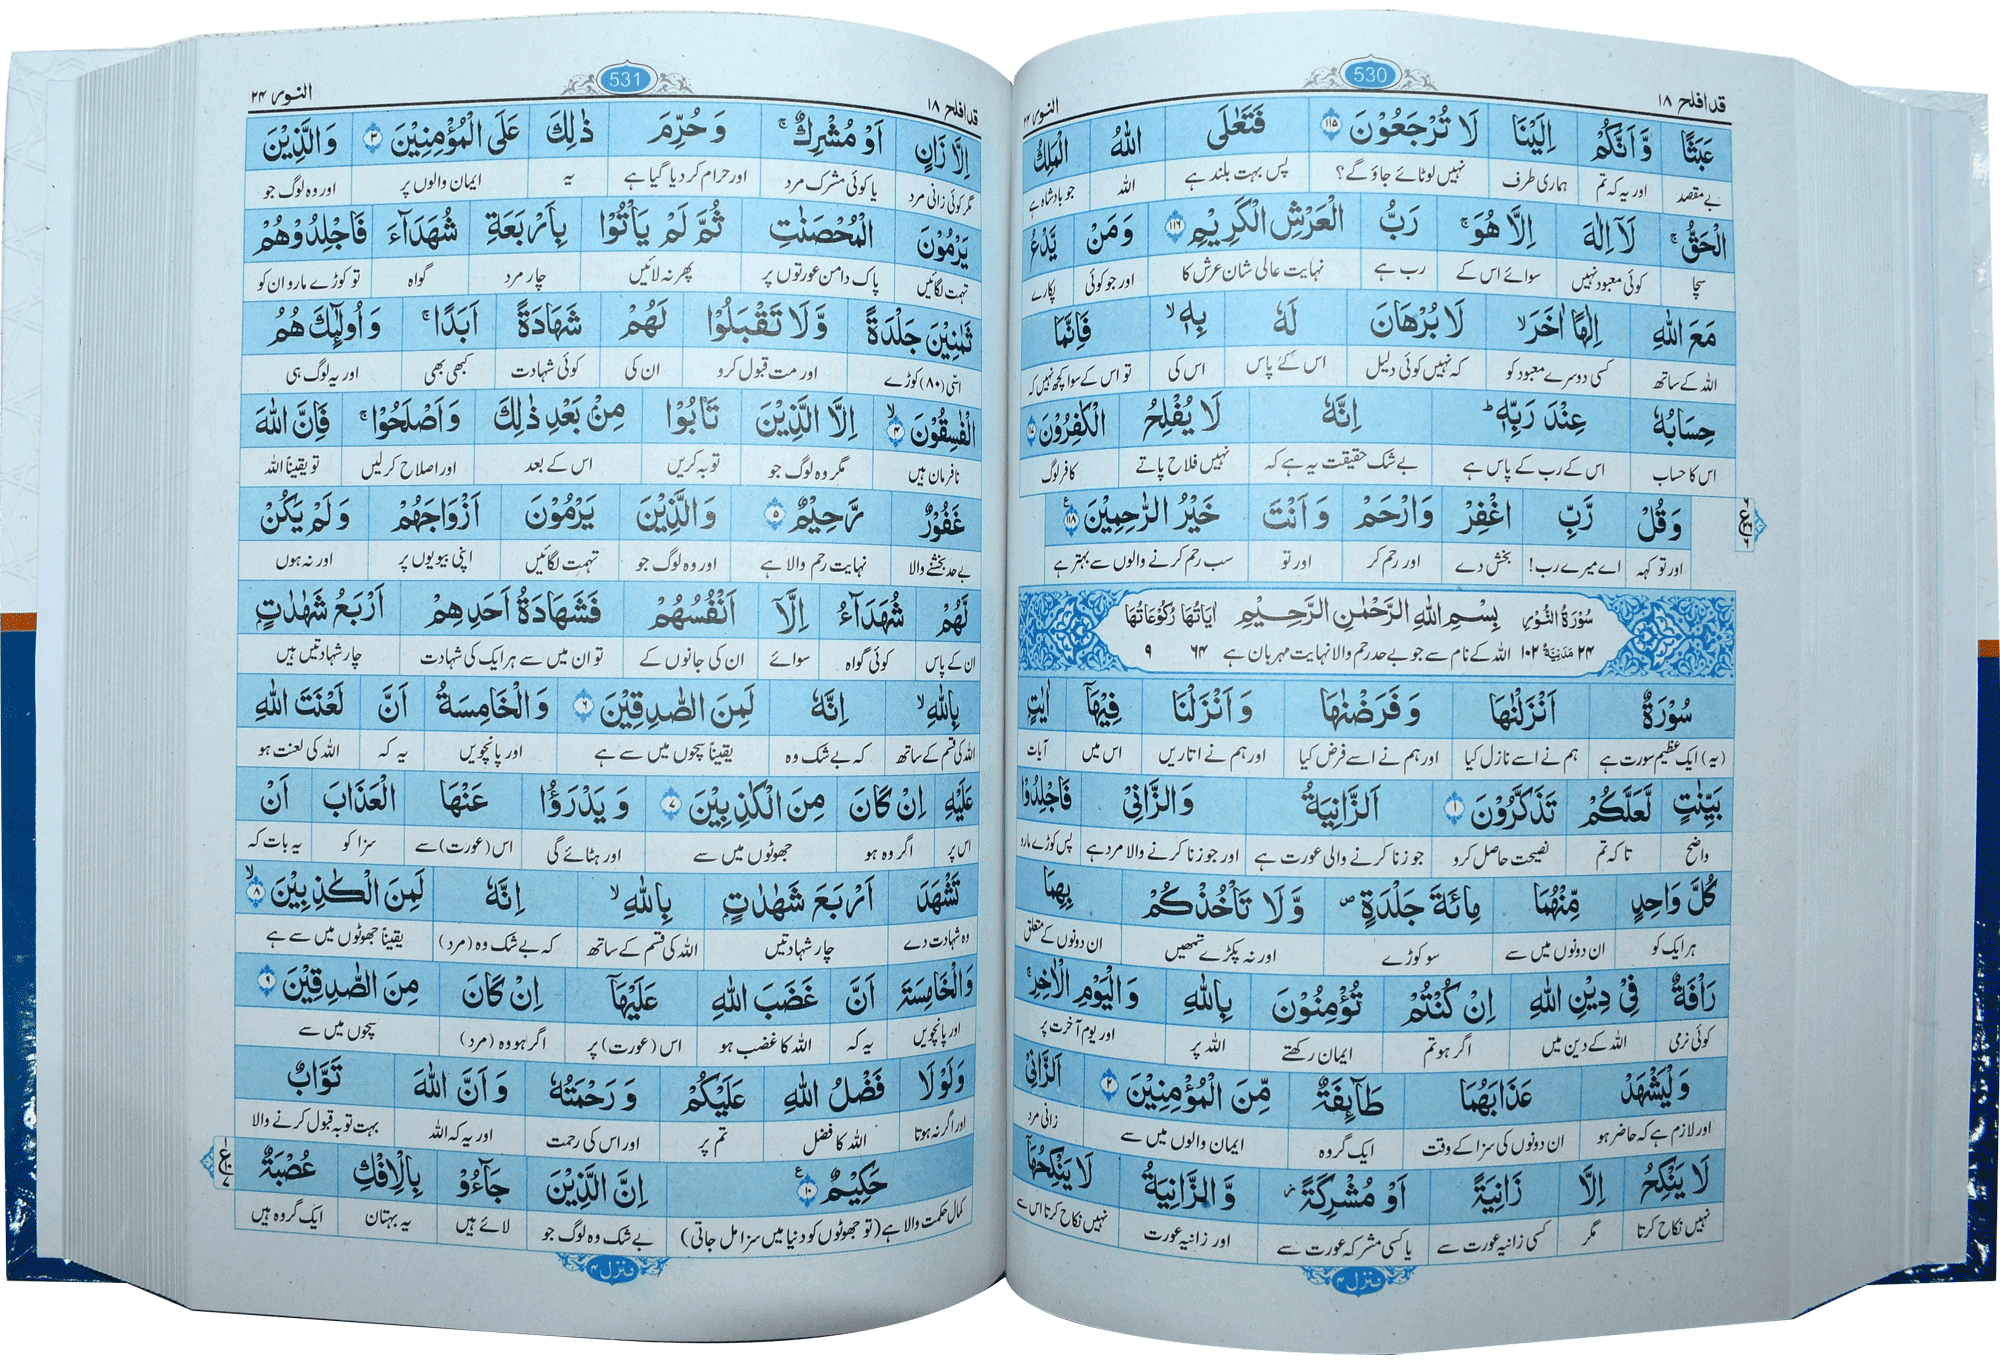 قد افلح ١٨ 530 النور ٢٤
عَبَثًا وَّاَنَّكُمْ اِلَيْنَا لَا تُرْجَعُوْنَ ١١٥ فَتَعٰلَى اللّٰهُ الْمَلِكُ
بے مقصد اور یہ کہ تم ہماری طرف نہیں لوٹائے جاؤ گے؟ پس بہت بلند ہے اللہ جو بادشاہ ہے
الْحَقُّ ۚ لَآ اِلٰهَ اِلَّا هُوَ ۚ رَبُّ الْعَرْشِ الْكَرِيْمِ ١١٦ وَمَنْ يَّدْعُ
سچا کوئی معبود نہیں سوائے اس کے رب ہے نہایت عالی شان عرش کا اور جو کوئی پکارے
مَعَ اللّٰهِ اِلٰهًا اٰخَرَ ۙ لَا بُرْهَانَ لَهٗ بِهٖ ۙ فَاِنَّمَا
اللہ کے ساتھ کسی دوسرے معبود کو کہ نہیں کوئی دلیل اس کے پاس اس کی تو اس کے سوا کچھ نہیں کہ
حِسَابُهٗ عِنْدَ رَبِّهٖ ؕ اِنَّهٗ لَا يُفْلِحُ الْكٰفِرُوْنَ ١١٧
اس کا حساب اس کے رب کے پاس ہے بے شک حقیقت یہ ہے کہ نہیں فلاح پاتے کافر لوگ
وَقُلْ رَّبِّ اغْفِرْ وَارْحَمْ وَاَنْتَ خَيْرُ الرّٰحِمِيْنَ ١١٨
اور تو کہہ اے میرے رب! بخش دے اور رحم کر اور تو سب رحم کرنے والوں سے بہتر ہے
سُوْرَةُ النُّوْرِ بِسْمِ اللّٰهِ الرَّحْمٰنِ الرَّحِيْمِ اٰيَاتُهَا رُكُوْعَاتُهَا
٢٤ مَدَنِيَّةٌ ١٠٢ اللہ کے نام سے جو بے حد رحم والا نہایت مہربان ہے ٦٤ ٩
سُوْرَةٌ اَنْزَلْنٰهَا وَفَرَضْنٰهَا وَاَنْزَلْنَا فِيْهَآ اٰيٰتٍۭ
(یہ) ایک عظیم سورت ہے ہم نے اسے نازل کیا اور ہم نے اسے فرض کیا اور ہم نے اتاریں اس میں آیات
بَيِّنٰتٍ لَّعَلَّكُمْ تَذَكَّرُوْنَ ١ اَلزَّانِيَةُ وَالزَّانِيْ فَاجْلِدُوْا
واضح تا کہ تم نصیحت حاصل کرو جو زنا کرنے والی عورت ہے اور جو زنا کرنے والا مرد ہے پس کوڑے مارو
كُلَّ وَاحِدٍ مِّنْهُمَا مِائَةَ جَلْدَةٍ ۪ وَّلَا تَاْخُذْكُمْ بِهِمَا
ہر ایک کو ان دونوں میں سے سو کوڑے اور نہ پکڑے تمھیں ان دونوں کے متعلق
رَاْفَةٌ فِيْ دِيْنِ اللّٰهِ اِنْ كُنْتُمْ تُؤْمِنُوْنَ بِاللّٰهِ وَالْيَوْمِ الْاٰخِرِ ۚ
کوئی نرمی اللہ کے دین میں اگر ہو تم ایمان رکھتے اللہ پر اور یوم آخرت پر
وَلْيَشْهَدْ عَذَابَهُمَا طَآئِفَةٌ مِّنَ الْمُؤْمِنِيْنَ ٢ اَلزَّانِيْ
اور لازم ہے کہ حاضر ہو ان دونوں کی سزا کے وقت ایک گروہ ایمان والوں میں سے زانی مرد
لَا يَنْكِحُ اِلَّا زَانِيَةً اَوْ مُشْرِكَةً ۡ وَّالزَّانِيَةُ لَا يَنْكِحُهَآ
نہیں نکاح کرتا مگر کسی زانیہ عورت سے یا کسی مشرکہ عورت سے اور زانیہ عورت نہیں نکاح کرتا اس سے
منزل ٤
قد افلح ١٨ 531 النور ٢٤
اِلَّا زَانٍ اَوْ مُشْرِكٌ ۚ وَحُرِّمَ ذٰلِكَ عَلَى الْمُؤْمِنِيْنَ ٣ وَالَّذِيْنَ
مگر کوئی زانی مرد یا کوئی مشرک مرد اور حرام کر دیا گیا ہے یہ ایمان والوں پر اور وہ لوگ جو
يَرْمُوْنَ الْمُحْصَنٰتِ ثُمَّ لَمْ يَاْتُوْا بِاَرْبَعَةِ شُهَدَآءَ فَاجْلِدُوْهُمْ
تہمت لگائیں پاک دامن عورتوں پر پھر نہ لائیں چار مرد گواہ تو کوڑے مارو ان کو
ثَمٰنِيْنَ جَلْدَةً وَّلَا تَقْبَلُوْا لَهُمْ شَهَادَةً اَبَدًا ۚ وَاُولٰٓئِكَ هُمُ
اسّی (٨٠) کوڑے اور مت قبول کرو ان کی کوئی شہادت کبھی بھی اور یہ لوگ ہی
الْفٰسِقُوْنَ ٤ ۙ اِلَّا الَّذِيْنَ تَابُوْا مِنْۢ بَعْدِ ذٰلِكَ وَاَصْلَحُوْا ۚ فَاِنَّ اللّٰهَ
نافرمان ہیں مگر وہ لوگ جو توبہ کریں اس کے بعد اور اصلاح کر لیں تو یقیناً اللہ
غَفُوْرٌ رَّحِيْمٌ ٥ وَالَّذِيْنَ يَرْمُوْنَ اَزْوَاجَهُمْ وَلَمْ يَكُنْ
بے حد بخشنے والا نہایت رحم والا ہے اور وہ لوگ جو تہمت لگائیں اپنی بیویوں پر اور نہ ہوں
لَّهُمْ شُهَدَآءُ اِلَّآ اَنْفُسُهُمْ فَشَهَادَةُ اَحَدِهِمْ اَرْبَعُ شَهٰدٰتٍۭ
ان کے پاس کوئی گواہ سوائے ان کی جانوں کے تو ان میں سے ہر ایک کی شہادت چار شہادتیں ہیں
بِاللّٰهِ ۙ اِنَّهٗ لَمِنَ الصّٰدِقِيْنَ ٦ وَالْخَامِسَةُ اَنَّ لَعْنَتَ اللّٰهِ
اللہ کی قسم کے ساتھ کہ بے شک وہ یقیناً سچوں میں سے ہے اور پانچویں یہ کہ اللہ کی لعنت ہو
عَلَيْهِ اِنْ كَانَ مِنَ الْكٰذِبِيْنَ ٧ وَيَدْرَؤُا عَنْهَا الْعَذَابَ اَنْ
اس پر اگر وہ ہو جھوٹوں میں سے اور ہٹائے گی اس (عورت) سے سزا کو یہ بات کہ
تَشْهَدَ اَرْبَعَ شَهٰدٰتٍۭ بِاللّٰهِ ۙ اِنَّهٗ لَمِنَ الْكٰذِبِيْنَ ٨ ۙ
وہ شہادت دے چار شہادتیں اللہ کی قسم کے ساتھ کہ بے شک وہ (مرد) یقیناً جھوٹوں میں سے ہے
وَالْخَامِسَةَ اَنَّ غَضَبَ اللّٰهِ عَلَيْهَآ اِنْ كَانَ مِنَ الصّٰدِقِيْنَ ٩
اور پانچویں یہ کہ اللہ کا غضب ہو اس (عورت) پر اگر ہو وہ (مرد) سچوں میں سے
وَلَوْلَا فَضْلُ اللّٰهِ عَلَيْكُمْ وَرَحْمَتُهٗ وَاَنَّ اللّٰهَ تَوَّابٌ
اور اگر نہ ہوتا اللہ کا فضل تم پر اور اس کی رحمت اور یہ کہ اللہ بہت توبہ قبول کرنے والا
حَكِيْمٌ ١٠ اِنَّ الَّذِيْنَ جَآءُوْ بِالْاِفْكِ عُصْبَةٌ
کمال حکمت والا ہے (تو جھوٹوں کو دنیا میں سزا مل جاتی) بے شک وہ لوگ جو لائے ہیں یہ بہتان ایک گروہ ہیں
منزل ٤